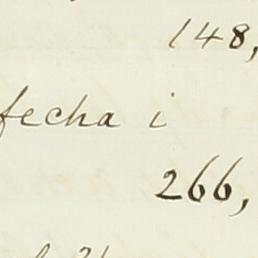 148,
fecha i
266,